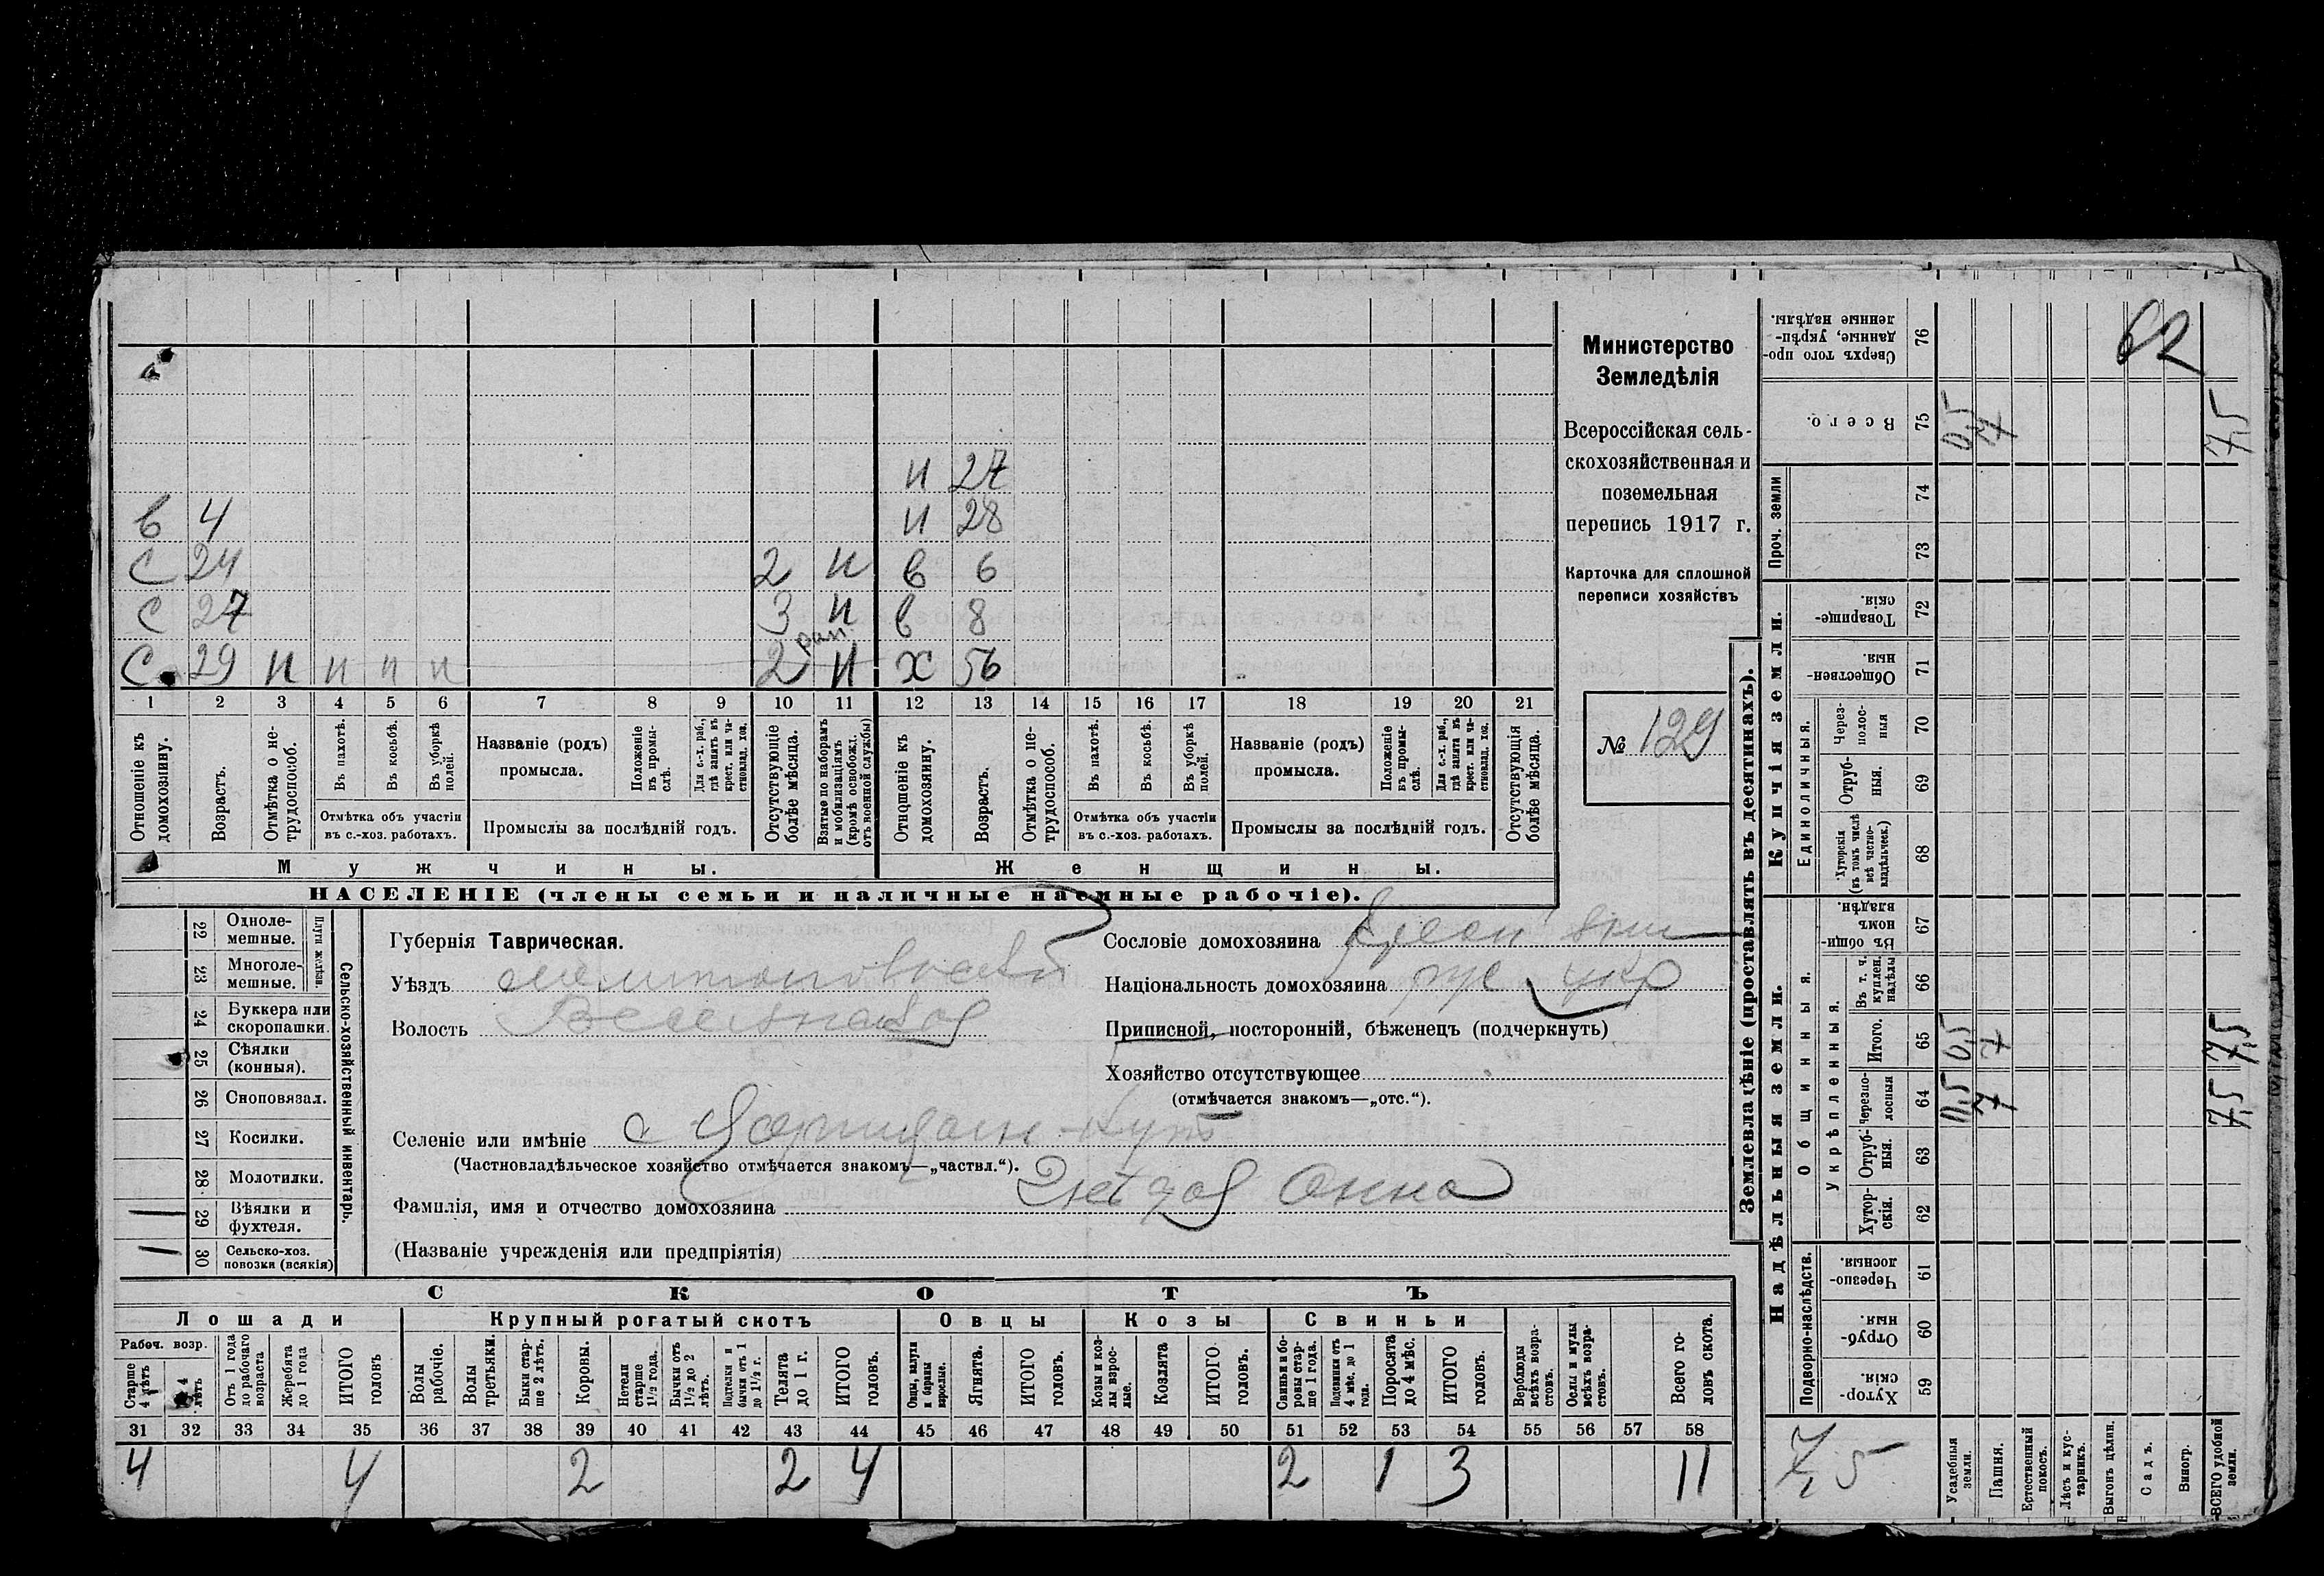 62
Министерство
Земледѣлія
Всероссійская сель-
скохозяйственная и
поземельная
перепись 1917 г.
Карточка для сплошной
переписи хозяйствъ
№ 129
и 27
в 4 и 28
с 24 2 и в 6
с 27 3 и в 8
с 29 н н н н 2 и х 56
1 2 3 4 5 6 7 8 9 10 11 12 13 14 15 16 17 18 19 20 21
Отношеніе къ домохозяину.
Возрастъ.
Отмѣтка о не-трудоспособ.
Въ пахотѣ.
Въ косьбѣ.
Въ уборкѣ полей.
Отмѣтка объ участіи
въ с.-хоз. работахъ.
Названіе (родъ)
промысла.
Положеніе въ промы-слѣ.
Для с.-х. раб., гдѣ занятъ въ крест. или ча-стновлад. хоз.
Промыслы за послѣдній годъ.
Отсутствующіе болѣе мѣсяца.
Взятые по наборамъ и мобилизаціямъ (кромѣ освобожд. отъ военной службы)
Отношеніе къ домохозяину.
Возрастъ.
Отмѣтка о не-трудоспособ.
Въ пахотѣ.
Въ косьбѣ.
Въ уборкѣ полей.
Отмѣтка объ участіи
въ с.-хоз. работахъ.
Названіе (родъ)
промысла.
Положеніе въ промы-слѣ.
Для с.-х. раб., гдѣ занята въ крест. или ча-стновлад. хоз.
Промыслы за послѣдній годъ.
Отсутствующія болѣе мѣсяца.
Мужчины. Женщины.
НАСЕЛЕНІЕ (члены семьи и наличные наемные рабочіе).
22 Одноле-мешные.
23 Многоле-мешные.
Плуги желѣзн.
24 Буккера или скоропашки.
25 Сѣялки (конныя).
26 Сноповязал.
27 Косилки.
28 Молотилки.
1 29 Вѣялки и фухтеля.
1 30 Сельско-хоз. повозки (всякія)
Сельско-хозяйственный инвентарь.
Губернія Таврическая.
Уѣздъ Мелитопольскій
Волость
Сословіе домохозяина
Національность домохозяина рус укр
Приписной, посторонній, бѣженецъ (подчеркнуть)
Хозяйство отсутствующее
(отмѣчается знакомъ—„отс.“).
Селеніе или имѣніе с Царицын-Кутъ
(Частновладѣльческое хозяйство отмѣчается знакомъ—„частвл.“).
Фамилія, имя и отчество домохозяина Анна
(Названіе учрежденія или предпріятія)
СКОТЪ
Лошади Крупный рогатый скотъ Овцы Козы Свиньи
Рабоч. возр.
Старше 4 лѣтъ
4 лѣтъ
Отъ 1 года до рабочаго возраста
Жеребята до 1 года
ИТОГО головъ
Волы рабочіе.
Волы третьяки.
Быки стар-ше 2 лѣтъ.
Коровы.
Нетели старше 1½ года.
Бычки отъ 1½ до 2 лѣтъ.
Подтелки и бычки отъ 1 до 1½ г.
Телята до 1 г.
ИТОГО головъ.
Овцы, валухи и бараны взрослые.
Ягнята.
ИТОГО головъ.
Козы и коз-лы взрос-лые.
Козлята
ИТОГО головъ.
Свиньи и бо-ровы стар-ше 1 года.
Подсвинки отъ 4 мѣс. до 1 года.
Поросята до 4 мѣс.
ИТОГО головъ.
Верблюды всѣхъ возра-стовъ.
Ослы и мулы всѣхъ возра-стовъ.
Всего го-ловъ скота.
31 32 33 34 35 36 37 38 39 40 41 42 43 44 45 46 47 48 49 50 51 52 53 54 55 56 57 58
4 4 2 2 4 2 1 3 11
Землевладѣніе (проставлять въ десятинахъ).
Купчія земли.
Надѣльныя земли.
Проч. земли
Единоличныя.
Общинныя.
Укрѣпленныя.
Подворно-наслѣдств.
Сверхъ того про-данные, укрѣп-ленные надѣлы. 76
Всего. 75 0,5 7 7,5
74
73
Товарище-скія. 72
Обществен-ныя 71
Через-полос-ныя 70
Отруб-ныя. 69
Хуторскія (въ томъ числѣ всѣ частно-владѣльческ.) 68
Въ общин-номъ владѣн. 67
Въ т. ч. куплен. надѣлы 66
Итого. 65 0,5 7 7,5
Черезпо-лосныя 64 0,5 7 7,5
Отруб-ныя. 63
Хутор-скія. 62
Черезпо-лосныя. 61
Отруб-ныя. 60
Хутор-скія. 59
7,5
Усадебныя земли.
Пашня.
Естественный покосъ.
Лѣсъ и кус-тарникъ.
Выгонъ цѣлин.
Садъ.
Виногр.
ВСЕГО удобной земли.